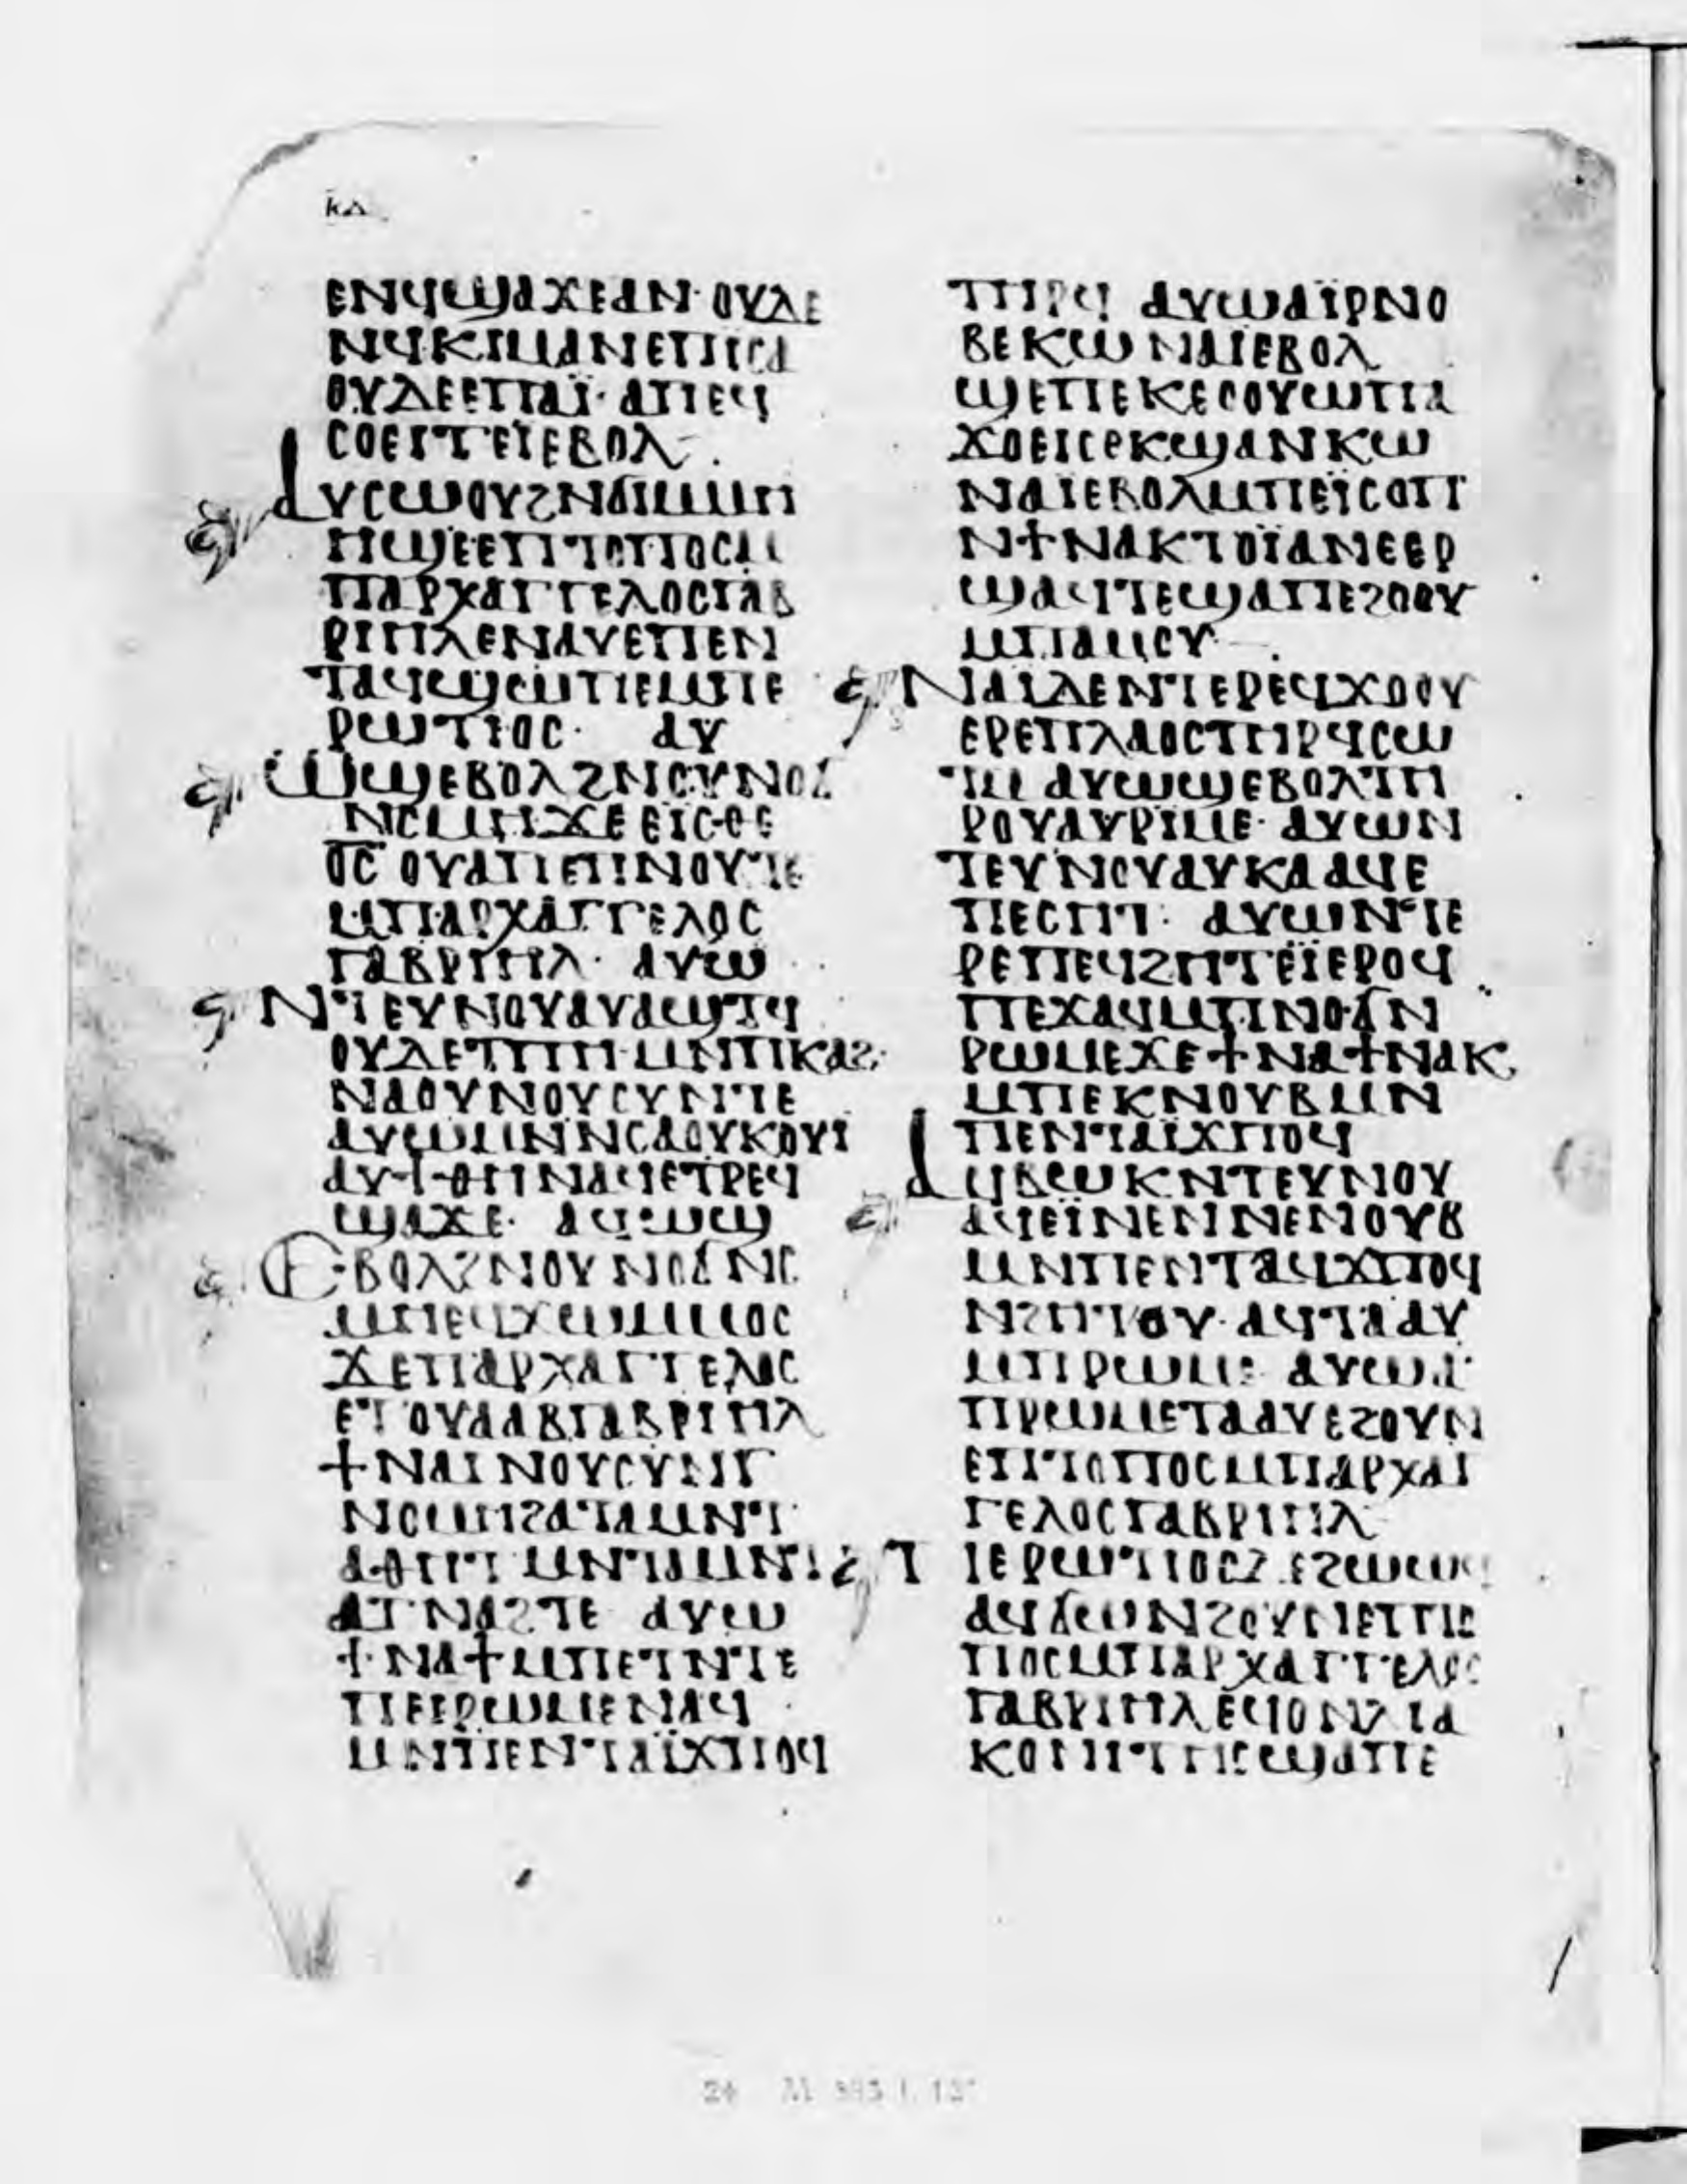 ⲕⲇ
ⲉⲛϥϣⲁϫⲉⲁⲛ· ⲟⲩⲇⲉ
ⲛϥⲕⲓⲙⲁⲛⲉⲡⲓⲥⲁ
ⲟⲩⲇⲉⲉⲡⲁⲓ̈· ⲁⲡⲉϥ
ⲥⲟⲉⲓⲧⲉⲓ̈ⲉⲃⲟⲗ
ⲁⲩⲥⲱⲟⲩϩⲛϭⲓⲙⲙⲏ
ⲏϣⲉⲉⲡⲧⲟⲡⲟⲥⲙ
ⲡⲁⲣⲭⲁⲅⲅⲉⲗⲟⲥⲅⲁⲃ
ⲣⲓⲏⲗⲉⲛⲁⲩⲉⲡⲉⲛ
ⲧⲁϥϣⲱⲡⲉⲙⲡⲉ
ⲣⲱⲧⲟⲥ· ⲁⲩ
ⲱϣⲉⲃⲟⲗϩⲛⲟⲩⲛⲟϭ
ⲛⲥⲙⲏϫⲉⲉⲓⲥⲑⲉ
ⲟⲥ ⲟⲩⲁⲡⲉⲡⲛⲟⲩⲧⲉ
ⲙⲡⲁⲣⲭⲁⲅⲅⲉⲗⲟⲥ
ⲅⲁⲃⲣⲓⲏⲗ· ⲁⲩⲱ
ⲛⲧⲉⲩⲛⲟⲩⲁⲩⲁϣⲧϥ
ⲟⲩⲇⲉⲧⲏⲏ ⲙⲛⲡⲕⲁϩ
ⲛⲁⲟⲩⲛⲟⲩⲥⲩⲛⲧⲉ
ⲁⲩⲱⲙⲛⲛⲥⲁⲟⲩⲕⲟⲩⲓ
ⲁⲩϯⲑⲏⲛⲁϥⲉⲧⲣⲉϥ
ϣⲁϫⲉ· ⲁϥⲱϣ
ⲉⲃⲟⲗϩⲛⲟⲩⲛⲟϭⲛⲥ
ⲙⲏⲉϥϫⲱⲙⲙⲟⲥ
ϫⲉⲡⲁⲣⲭⲁⲅⲅⲉⲗⲟⲥ
ⲉⲧⲟⲩⲁⲁⲃⲅⲁⲃⲣⲓⲏⲗ
ϯⲛⲁⲓ ⲛⲟⲩⲥⲩⲛⲅ
ⲛⲟⲙⲏϩⲁⲧⲁⲙⲛⲧ
ⲁⲑⲏⲧ ⲙⲛⲧⲁⲙⲛⲧ
ⲁⲧⲛⲁϩⲧⲉ ⲁⲩⲱ
ϯⲛⲁϯⲙⲡⲉⲧⲛⲧⲉ
ⲡⲉⲓⲣⲱⲙⲉⲛⲁϥ
ⲙⲛⲡⲉⲛⲧⲁⲓ̈ϫⲡⲟϥ
ⲧⲏⲣϥ ⲁⲩⲱⲁⲓ̈ⲣⲛⲟ
ⲃⲉⲕⲱⲛⲁⲓⲉⲃⲟⲗ
ϣⲉⲡⲉⲕⲉⲥⲟⲩⲱⲡⲁ
ϫⲟⲉⲓⲥⲉⲕϣⲁⲛⲕⲱ
ⲛⲁⲓⲉⲃⲟⲗⲙⲡⲉⲓ̈ⲥⲟⲡ
ⲛϯⲛⲁⲕⲧⲟⲓ̈ⲁⲛⲉⲉⲣ
ϣⲁϥⲧⲉϣⲁⲡⲉϩⲟⲟⲩ
ⲙⲡⲁⲙⲟⲩ
ⲛⲁⲓⲇⲉⲛⲧⲉⲣⲉϥϫⲟⲟⲩ
ⲉⲣⲉⲡⲗⲁⲟⲥⲧⲏⲣϥⲥⲱ
ⲧⲙ ⲁⲩⲱϣⲉⲃⲟⲗⲧⲏ
ⲣⲟⲩⲁⲩⲣⲓⲙⲉ· ⲁⲩⲱⲛ
ⲧⲉⲩⲛⲟⲩⲁⲩⲕⲁⲁϥⲉ
ⲡⲉⲥⲏⲧ· ⲁⲩⲱⲛⲧⲉ
ⲣⲉⲡⲉϥϩⲏⲧⲉⲓ̈ⲉⲣⲟϥ
ⲡⲉϫⲁϥⲙⲡⲛⲟϭⲛ
ⲣⲱⲙⲉϫⲉϯⲛⲁϯⲛⲁⲕ
ⲙⲡⲉⲕⲛⲟⲩⲃⲙⲛ
ⲡⲉⲛⲧⲁⲓ̈ϫⲡⲟϥ
ⲁϥⲃⲱⲕⲛⲧⲉⲩⲛⲟⲩ
ⲁϥⲉⲓ̈ⲛⲉⲛⲛⲉⲛⲟⲩⲃ
ⲙⲛⲡⲉⲛⲧⲁϥϫⲡⲟϥ
ⲛϩⲏⲧⲟⲩ· ⲁϥⲧⲁⲁⲩ
ⲙⲡⲣⲱⲙⲉ ⲁⲩⲱⲁ
ⲡⲣⲱⲙⲉⲧⲁⲁⲩⲉϩⲟⲩⲛ
ⲉⲡⲧⲟⲡⲟⲥⲙⲡⲁⲣⲭⲁⲅ
ⲅⲉⲗⲟⲥⲅⲁⲃⲣⲓⲏⲗ
ⲡⲉⲣⲱⲧⲟⲥϩ ⲉϩⲱⲱϥ
ⲁϥϭⲱⲛϩⲟⲩⲛⲉⲡⲧⲟ
ⲡⲟⲥⲙⲡⲁⲣⲭⲁⲅⲅⲉⲗⲟⲥ
ⲅⲁⲃⲣⲓⲏⲗⲉϥⲟⲛⲇⲓⲁ
ⲕⲟⲛⲏⲧⲏⲥϣⲁⲡⲉ